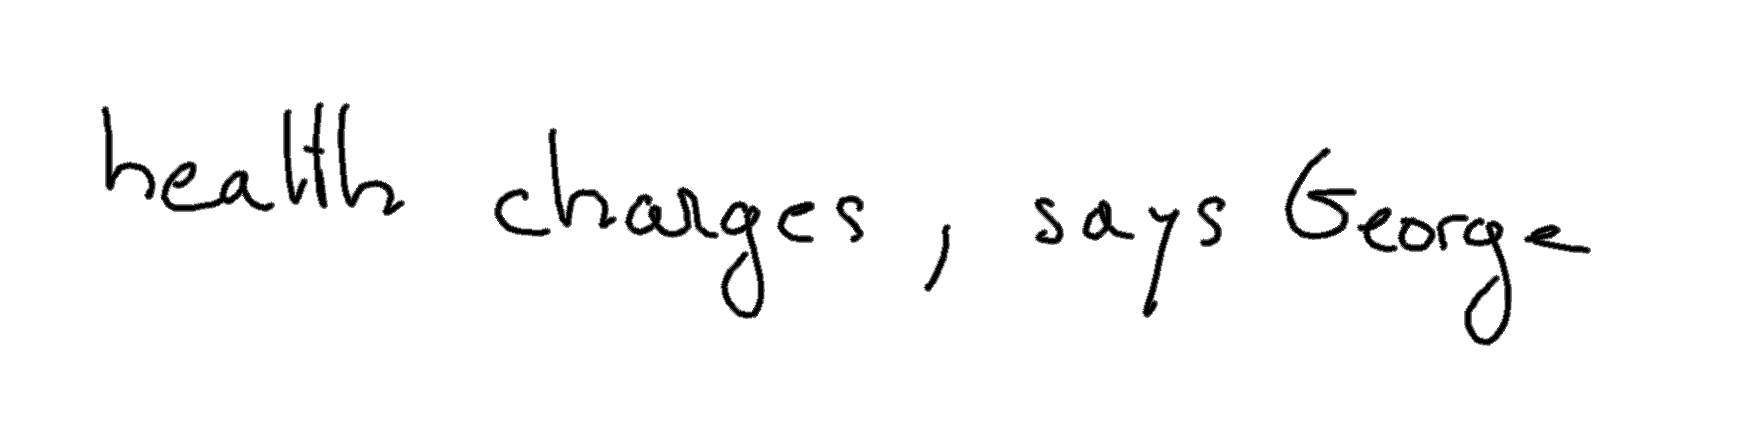 health charges, says George